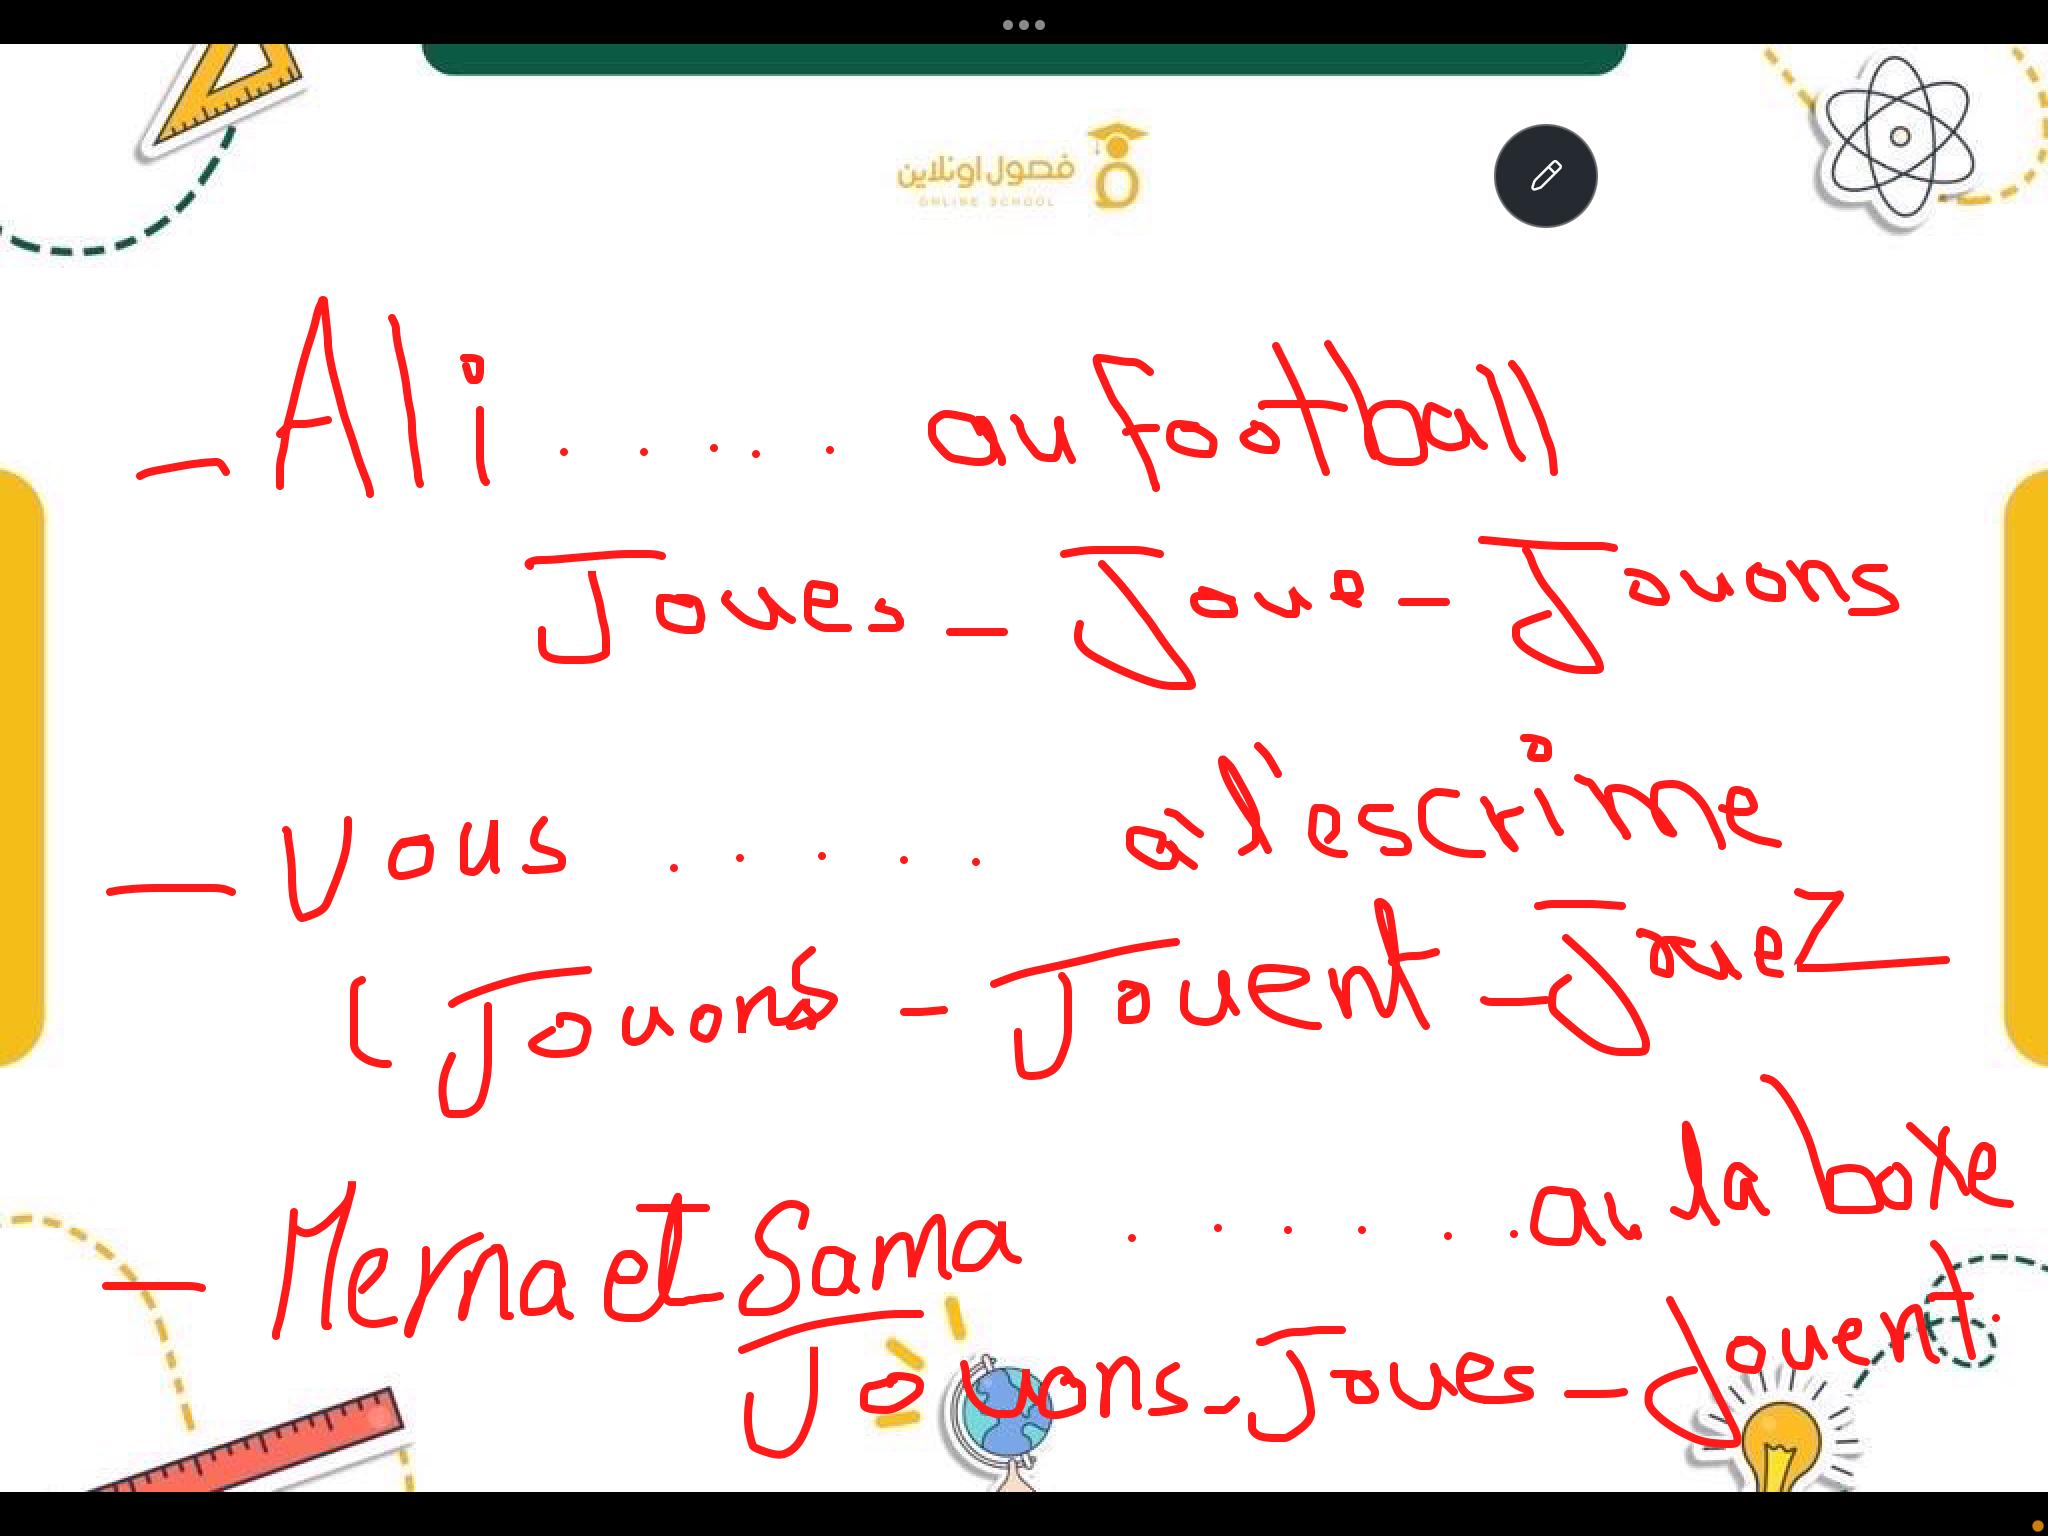 فصول اونلاين
ONLINE SCHOOL
- Ali ..... au football
Joues - Joue - Jouons
- Vous ..... à l'escrime
( Jouons - Jouent - JoueZ
- Merna et Sama ...... au la boxe
Jouons - Joues - Jouent.